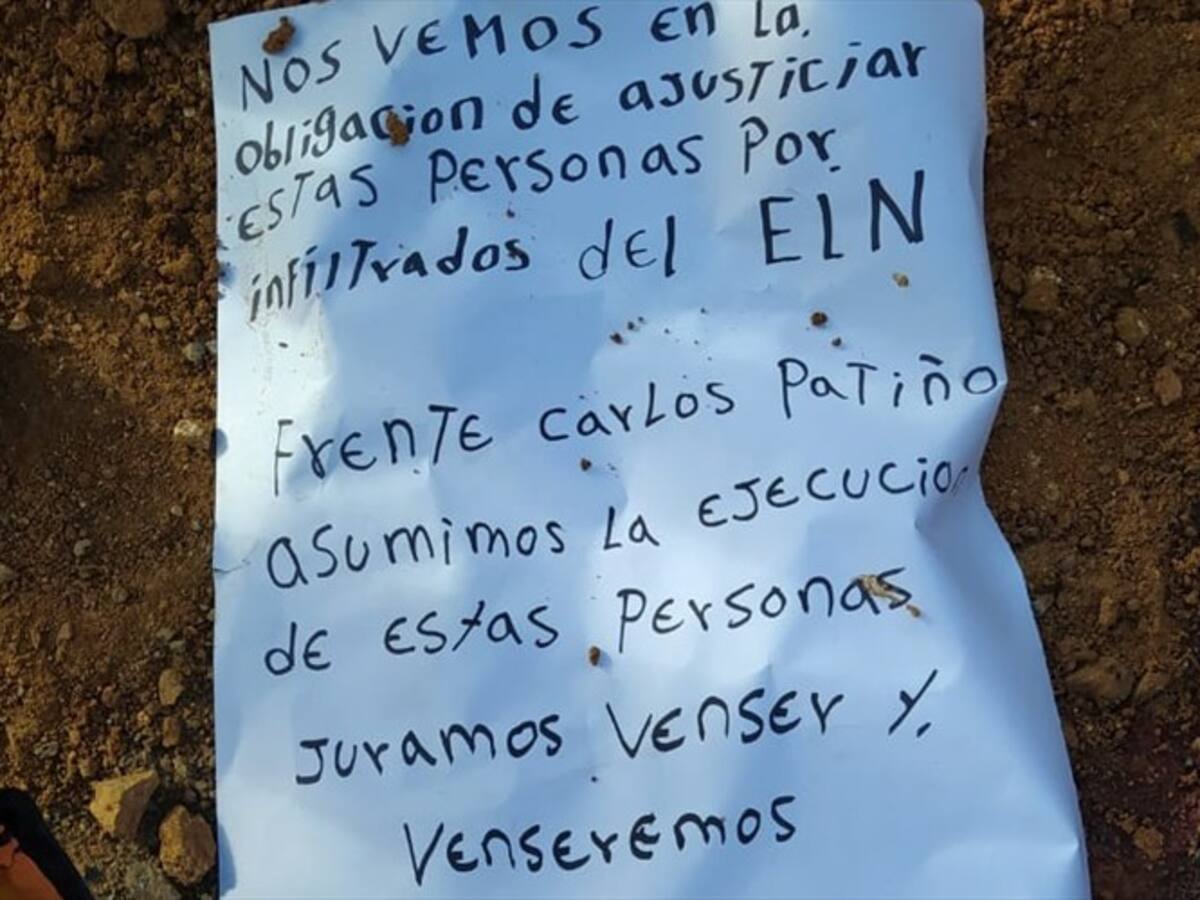 NOS VEMOS en La.
obligacion de ajusticiar
ESTAS Personas Por
infiltrados del ELN
FrenTE carLos PaTiño
asumimos La EJECUCion
de estas Personas
Juramos Venser y.
Venseremos